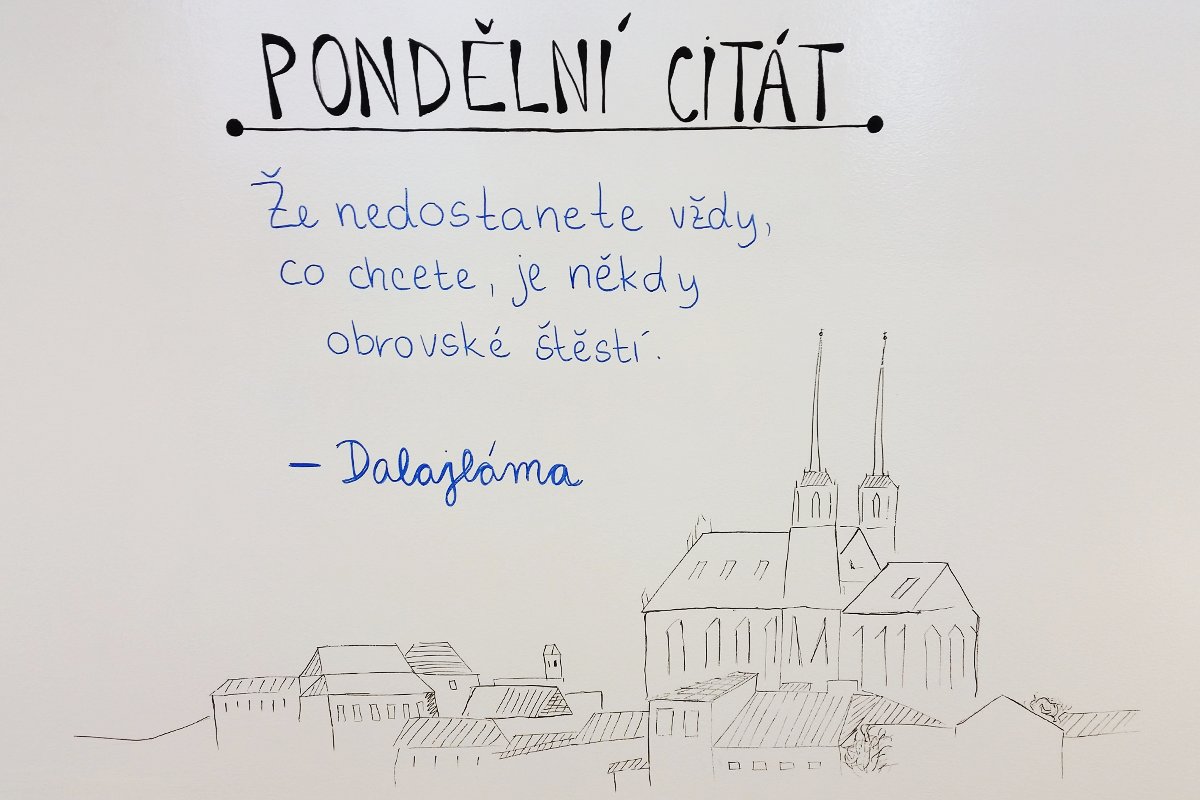 PONDĚLNÍ CITÁT
Že nedostanete vždy,
co chcete, je někdy
obrovské štěstí.
– Dalajláma